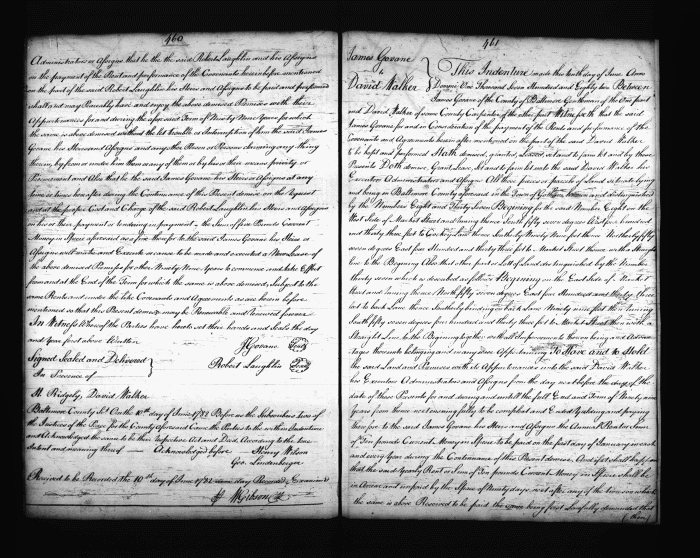 460
Administrators or Assigns that he the said Robert Laughlin and his Assigns
on the payment of the Rent and performance of the Covenants herein before mentioned
on the part of the said Robert Laughlin his Heirs and Assigns to be paid and performed
shall and may Peaceably have and enjoy the above demised Premises with their
Appurtenances for and during the aforesaid Term of Ninety Nine Years for which
the same is above demised without the let trouble or Interruption of him the said James
Govane his Heirs and Assigns and any other Person or Persons claiming any thing
therein by from or under him them or any of them or by his or their means privity or
Procurement and Also that he the said James Govane his Heirs or Assigns at any
time or times hereafter during the Continuance of this Present demise on the Request
and at the proper Cost and Charge of the said Robert Laughlin his Heirs and Assigns
on his or their payment or tendering in payment the Sum of five Pounds Current
Money in Specie aforesaid as a fine therefor to the said James Govane his Heirs or
Assigns will make and Execute or cause to be made and executed a New Lease of
the above demised Premises for other Ninety Nine Years to commence and take Effect
from and at the End of the Term for which the same is above demised, Subject to the
same Rents and under the like Covenants and Agreements as are herein before
mentioned so that this Present demise may be Renewable and renewed forever
In Witness Whereof the Parties have hereto set their hands and Seals the day
and Year first above Written
Js Govane Seal
Signed Sealed and Delivered
Robert Laughlin Seal
In Presence of
H. Ridgely, David Walker
Baltimore County Sct. On the 10th day of June 1782 Before us the Subscribers two of
the Justices of the Peace for the County aforesaid Came the Parties to the within Indenture
and Acknowledged the same to be their respective Act and Deed According to the true
Intent and meaning thereof Acknowledged before Henry Wilson
Geo. Lindenberger
Received to be Recorded the 10th day of June 1782 same day Recorded & Examined
Wm Gibson Clk
461
James Govane
to
David Walker
This Indenture made the tenth day of June Anno
Domini One Thousand Seven Hundred and Eighty two Between
James Govane of the County of Baltimore Gentleman of the One part
and David Walker of same County Carpenter of the other part Witnesseth that the said
James Govane for and in Consideration of the payment of the Rents and performance of the
Covenants and Agreements herein after mentioned on the part of the said David Walker
to be kept and performed Hath demised, granted, Leased, set and to farm let and by these
Presents Doth demise Grant, lease, set and to farm let unto the said David Walker his
Executors Administrators and Assigns All those pieces or parcels of Land situate lying
and being in Baltimore County aforesaid in the Town of and distinguished
by the Number Eight and Thirty Seven Beginning for the said Number Eight on the
West Side of Market Street and running thence South fifty seven degrees West four hundred
and thirty three feet to thence South Ninety feet thence North fifty
seven degrees East four Hundred and thirty feet to Market Street thence with a straight
Line to the Beginning Also that other part or Lott of Land distinguished by the Number
thirty seven which is described as follows Beginning on the East Side of Market
Street and running thence North fifty seven degrees East five Hundred and thirty three
feet to back Lane thence Southerly bounding on back Lane Ninety nine feet then running
South fifty seven degrees four hundred and thirty three feet to Market Street then with a
Straight Line to the Beginning together with all the improvements thereon being and Advan-
tages thereto belonging and in any wise Appertaining To Have and to Hold
the said Land and Premises with its Appurtenances unto the said David Walker
his Executors Administrators and Assigns from the day next before the day of the
date of these Presents for and during and untill the full End and Term of Ninety nine
Years from thence next ensuing fully to be compleat and Ended Yielding and paying
therefor to the said James Govane his Heirs and Assigns the Annual Rent or Sum
of Ten pounds Current Money in Specie to be paid on the first day of January in each
and every Year during the Continuance of this Present demise. And if it shall happen
that the said Yearly Rent or Sum of Ten pounds Current Money in Specie shall be
in Arrear and unpaid by the Space of Ninety days next after any of the times on which
the same is above Reserved to be paid the same being first Lawfully demanded that
then